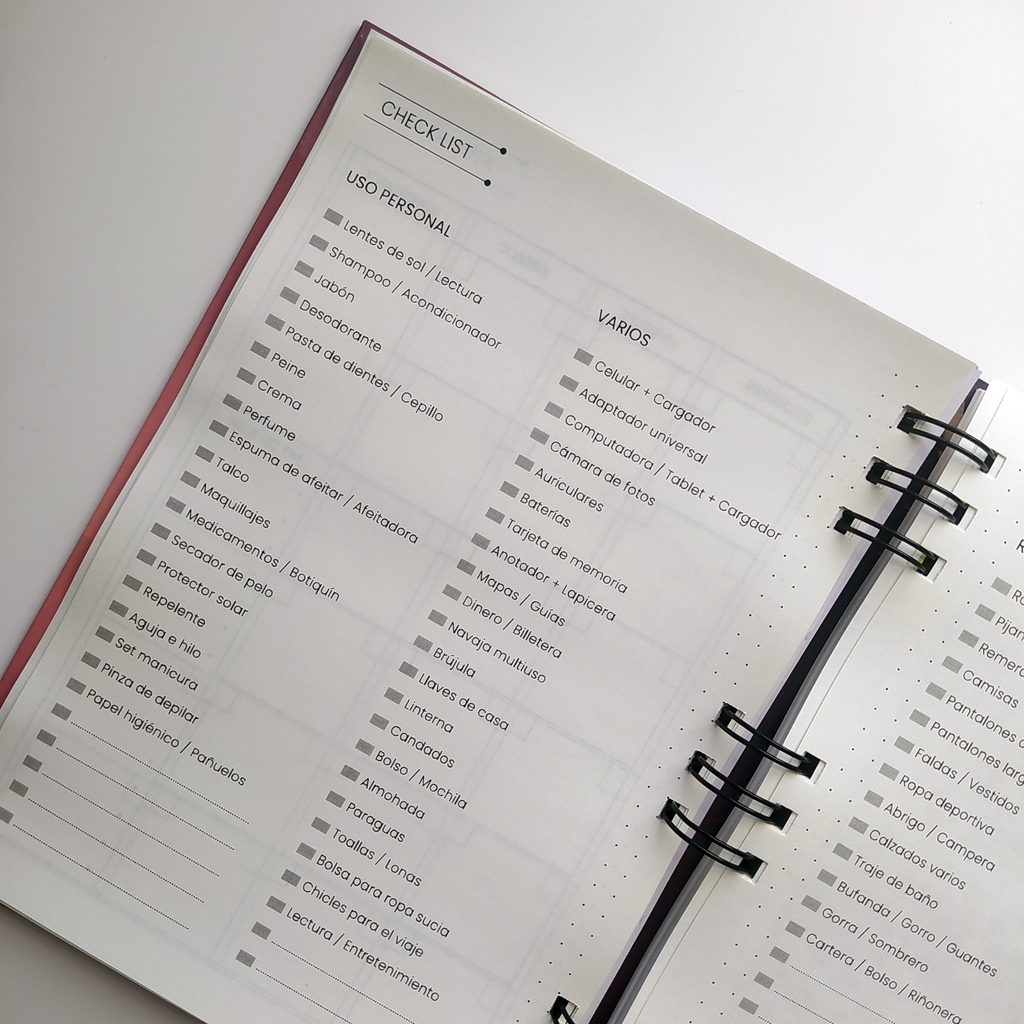 CHECK LIST
USO PERSONAL
Lentes de sol / Lectura
Shampoo / Acondicionador
Jabón
Desodorante
Pasta de dientes / Cepillo
Peine
Crema
Perfume
Espuma de afeitar / Afeitadora
Talco
Maquillajes
Medicamentos / Botiquín
Secador de pelo
Protector solar
Repelente
Aguja e hilo
Set manicura
Pinza de depilar
Papel higiénico / Pañuelos
VARIOS
Celular + Cargador
Adaptador universal
Computadora / Tablet + Cargador
Cámara de fotos
Auriculares
Baterías
Tarjeta de memoria
Anotador + Lapicera
Mapas / Guías
Dinero / Billetera
Navaja multiuso
Brújula
Llaves de casa
Linterna
Candados
Bolso / Mochila
Almohada
Paraguas
Toallas / Lonas
Bolsa para ropa sucia
Chicles para el viaje
Lectura / Entretenimiento
Camisas
Pantalones
Pantalones
Faldas / Vestidos
Ropa deportiva
Abrigo / Campera
Calzados varios
Traje de baño
Bufanda / Gorro / Guantes
Gorra / Sombrero
Cartera / Bolso / Riñonera